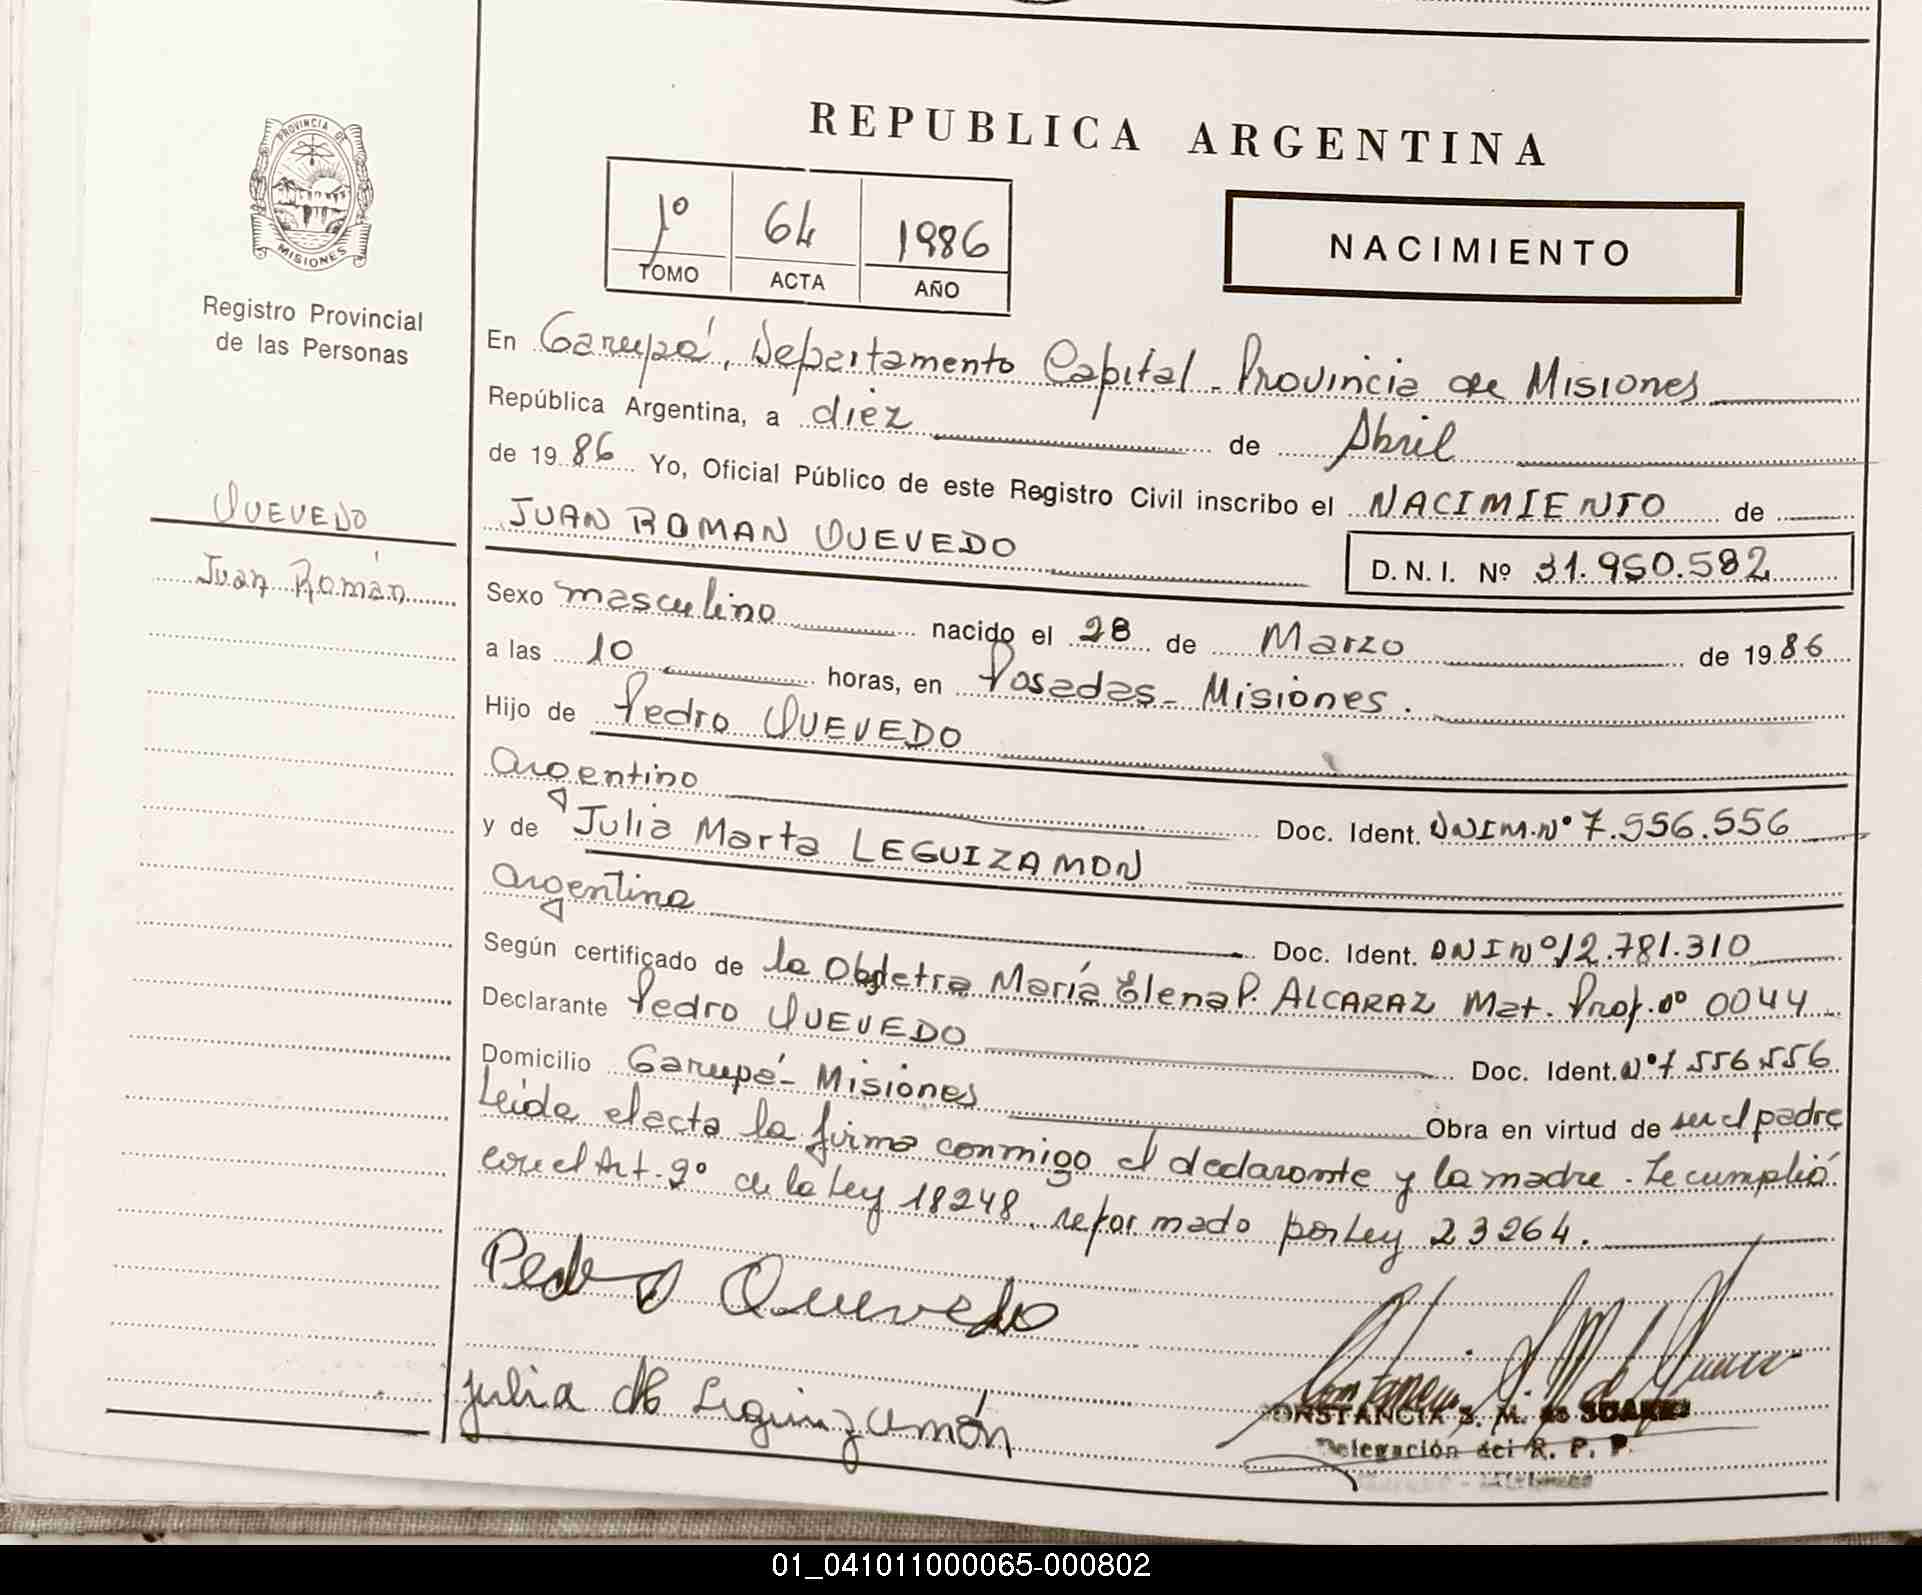 PROVINCIA DE
MISIONES
Registro Provincial
de las Personas
QUEVEDO
Juan Román
REPUBLICA ARGENTINA
1º 64 1986
TOMO ACTA AÑO
NACIMIENTO
En Garupá, Departamento Capital - Provincia de Misiones
República Argentina, a diez de Abril
de 1986 Yo, Oficial Público de este Registro Civil inscribo el NACIMIENTO de
JUAN ROMAN QUEVEDO
D.N.I. Nº 31.950.582
Sexo masculino nacido el 28 de Marzo de 1986
a las 10 horas, en Posadas - Misiones.
Hijo de Pedro QUEVEDO
Argentino Doc. Ident. DNIM.Nº 7.556.556
y de Julia Marta LEGUIZAMON
Argentina Doc. Ident. DNI Nº 12.781.310
Según certificado de la Obstetra María Elena P. ALCARAZ Mat. Prof. nº 0044
Declarante Pedro QUEVEDO Doc. Ident. Nº 7.556.556
Domicilio Garupá - Misiones Obra en virtud de ser el padre
Leída el acta la firma conmigo el declarante y la madre. Se cumplió
con el Art. 2º de la Ley 18248, reformado por Ley 23264.
Pedro Quevedo
Julia M Leguizamón
CONSTANCIA S. M. de SUAREZ
Delegación del R. P. P.
01_041011000065-000802